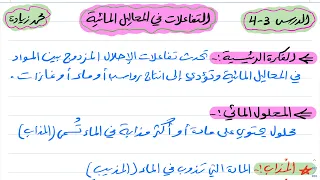 الدرس 3-4
التفاعلات في المحاليل المائية
الفكرة الرئيسية :- تحدث تفاعلات الإحلال المزدوج بين المواد
في المحاليل المائية وتؤدي إلى انتاج رواسب أو ماء أو غازات .
المحلول المائي :-
محلول يحتوي على مادة أو أكثر مذابة في الماء تُسمى (المذاب)
المُذاب :- المادة التي تذوب في الماء (المذيب)